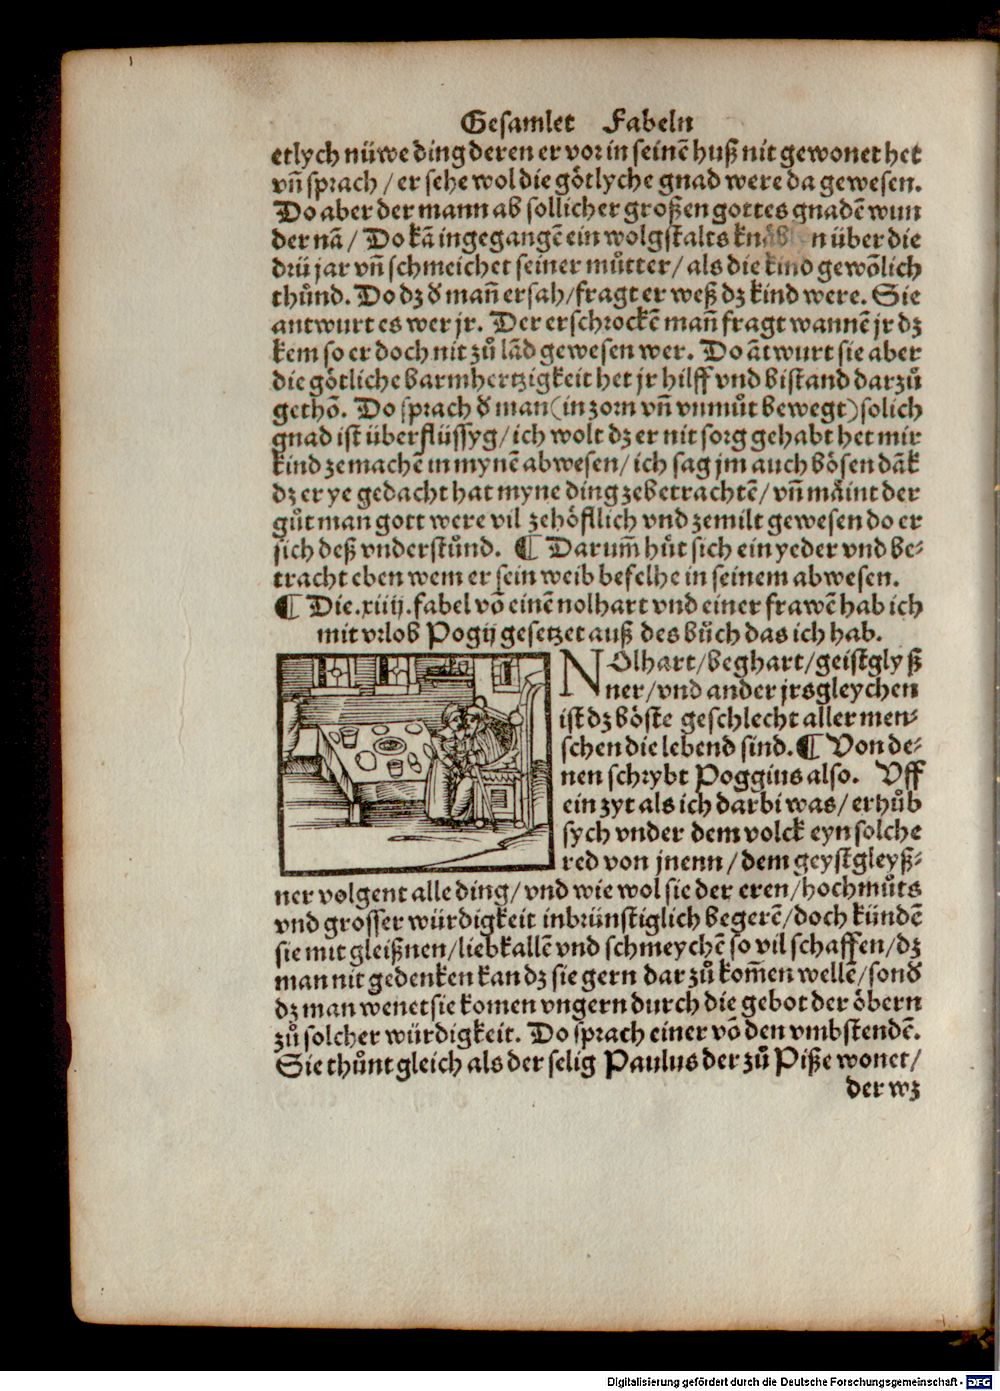 Gesamlet Fabeln
etlych nüwe ding deren er vor in seinē huß nit gewonet het
vn̄ sprach / er sehe wol die götlyche gnad were da gewesen.
Do aber der mann ab sollicher großen gottes gnadē wun
der nā / Do kā ingegangē ein wolgstalts über die
drü jar vn̄ schmeichet seiner můtter / als die kind gewōlich
thůnd. Do dz d' man̄ ersah / fragt er weß dz kind were. Sie
antwurt es wer jr. Der erschrockē man̄ fragt wannē jr dz
kem so er doch nit zů lād gewesen wer. Do ātwurt sie aber
die götliche barmhertzigkeit het jr hilff vnd bistand darzů
gethō. Do sprach d' man (in zorn vn̄ vnmůt bewegt) solich
gnad ist überflüssyg / ich wolt dz er nit sorg gehabt het mir
kind ze machē in mynē abwesen / ich sag jm auch bösen dāk
dz er ye gedacht hat myne ding ze betrachtē / vn̄ mäint der
gůt man gott were vil ze höfllich vnd ze milt gewesen do er
sich deß vnderstůnd. ¶ Darum̄ hůt sich ein yeder vnd be⸗
tracht eben wem er sein weib befelhe in seinem abwesen.
¶ Die .xiiij. fabel vō einē nolhart vnd einer frawē hab ich
mit vrlob Pogij gesetzet auß des bůch das ich hab.
NOlhart / beghart / geistglyß
ner / vnd ander jrsgleychen
ist dz böste geschlecht aller men⸗
schen die lebend sind. ¶ Von de⸗
nen schrybt Poggius also. Vff
ein zyt als ich darbi was / erhůb
sych vnder dem volck eyn solche
red von jnenn / dem geystgleyß⸗
ner volgent alle ding / vnd wie wol sie der eren / hochmůts
vnd grosser würdigkeit inbrünstiglich begerē / doch kündē
sie mit gleißnen / liebkallē vnd schmeychē so vil schaffen / dz
man nit gedenken kan dz sie gern dar zů kom̄en wellē / sond'
dz man wenet sie komen vngern durch die gebot der öbern
zů solcher würdigkeit. Do sprach einer vō den vmbstendē.
Sie thůnt gleich als der selig Paulus der zů Piße wonet /
der wz
Digitalisierung gefördert durch die Deutsche Forschungsgemeinschaft - DFG